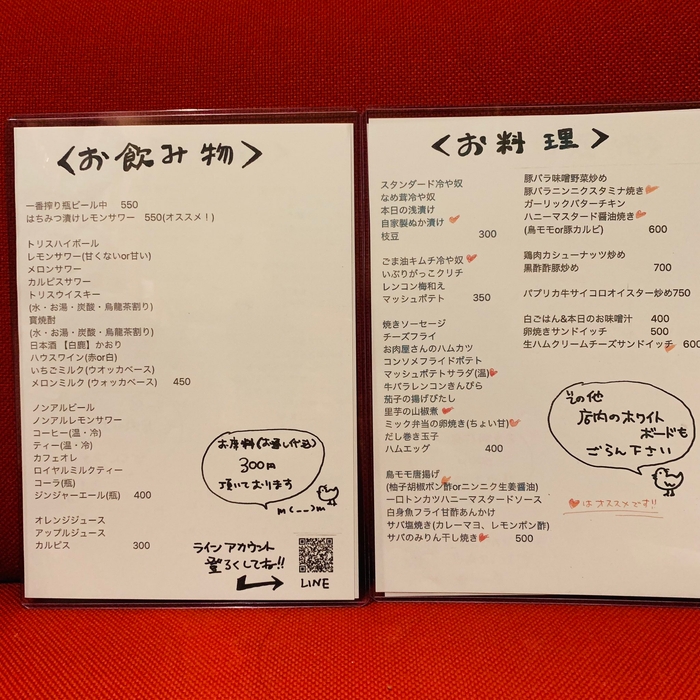 <お飲み物>
一番搾り瓶ビール中 550
はちみつ漬けレモンサワー 550(オススメ！)
トリスハイボール
レモンサワー(甘くないor甘い)
メロンサワー
カルピスサワー
トリスウイスキー
(水・お湯・炭酸・烏龍茶割り)
寶焼酎
(水・お湯・炭酸・烏龍茶割り)
日本酒【白鹿】かおり
ハウスワイン(赤or白)
いちごミルク(ウオッカベース)
メロンミルク(ウォッカベース) 450
ノンアルビール
ノンアルレモンサワー
コーヒー(温・冷)
ティー(温・冷)
カフェオレ
ロイヤルミルクティー
コーラ(瓶)
ジンジャーエール(瓶) 400
オレンジジュース
アップルジュース
カルピス 300
お席料(お通し代込)
300円
頂いております
m(__)m
ラインアカウント
登ろくしてね!!
LINE
<お料理>
スタンダード冷や奴
なめ茸冷や奴
本日の浅漬け
自家製ぬか漬け
枝豆 300
ごま油キムチ冷や奴
いぶりがっこクリチ
レンコン梅和え
マッシュポテト 350
焼きソーセージ
チーズフライ
お肉屋さんのハムカツ
コンソメフライドポテト
マッシュポテトサラダ(温)
牛バラレンコンきんぴら
茄子の揚げびたし
里芋の山椒煮
ミック弁当の卵焼き(ちょい甘)
だし巻き玉子
ハムエッグ 400
鳥モモ唐揚げ
(柚子胡椒ポン酢orニンニク生姜醤油)
一口トンカツハニーマスタードソース
白身魚フライ甘酢あんかけ
サバ塩焼き(カレーマヨ、レモンポン酢)
サバのみりん干し焼き 500
豚バラ味噌野菜炒め
豚バラニンニクスタミナ焼き
ガーリックバターチキン
ハニーマスタード醤油焼き
(鳥モモor豚カルビ) 600
鶏肉カシューナッツ炒め
黒酢酢豚炒め 700
パプリカ牛サイコロオイスター炒め750
白ごはん&本日のお味噌汁 400
卵焼きサンドイッチ 500
生ハムクリームチーズサンドイッチ 600
その他
店内のホワイト
ボードも
ごらん下さい
はオススメです!!